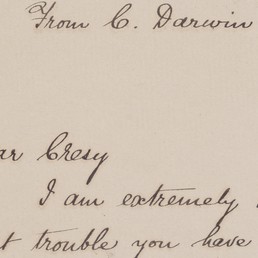 From C. Darwin
ar Cresy
I am extremely
t trouble you have